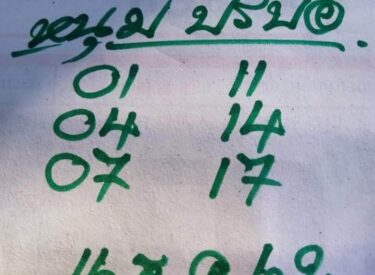 หนุ่ม ปรบอ.
01 11
04 14
07 17